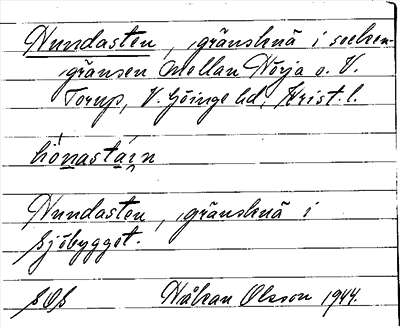 Hundasten, gränsknä i socken-
gränsen mellan Nörja o. V.
Torup, V. Göinge hd; Krist. l.
hónastáin
Hundasten, gränsknä i
Sjöbygget.
SOS Håkan Olsson 1944.